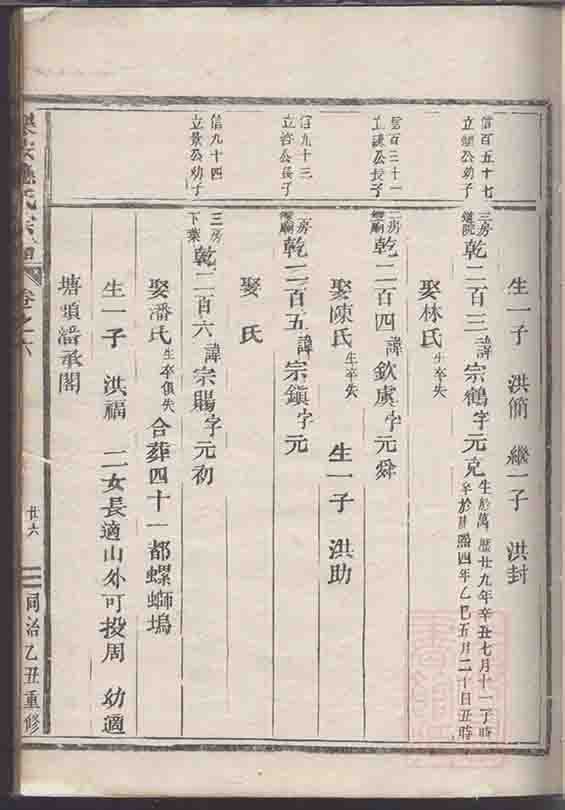 生一子 洪簡 繼一子 洪封
信百五十七
立 公幼子
三房
道院
乾二百三諱宗鶴字元克
生於萬歷廿九年辛丑七月十一丁時
卒於康熙四年乙巳五月二十日丑時
娶林氏生卒失
信百三十一
立 公長子
二房
廟
乾二百四諱欽虞字元舜
娶陳氏生卒失 生一子 洪助
信九十三
立 公長子
房
廟
乾二百五諱宗鎮字元
娶 氏
信九十四
立景公幼子
三房
下葉
乾二百六諱宗賜字元初
娶潘氏生卒俱失 合葬四十一都螺螄塢
生一子 洪福 二女長適山外可投周 幼適
塘頭潘承閣
氏宗譜 卷之六
廿六
同治乙丑重修